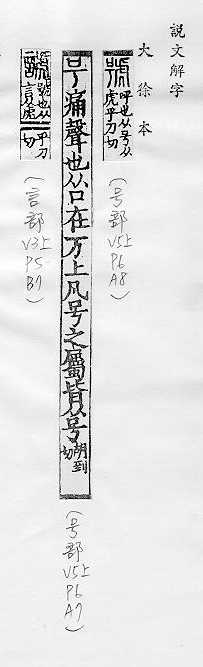 說文解字
大徐本
號 呼也从号从
虎乎刀切
(号部 V5上 P6 A8)
号痛聲也从口在丂上凡号之屬皆从号 胡到
切
(号部 V5上 P6 A7)
乎刀
切
(言部 V3上 P5 B7)